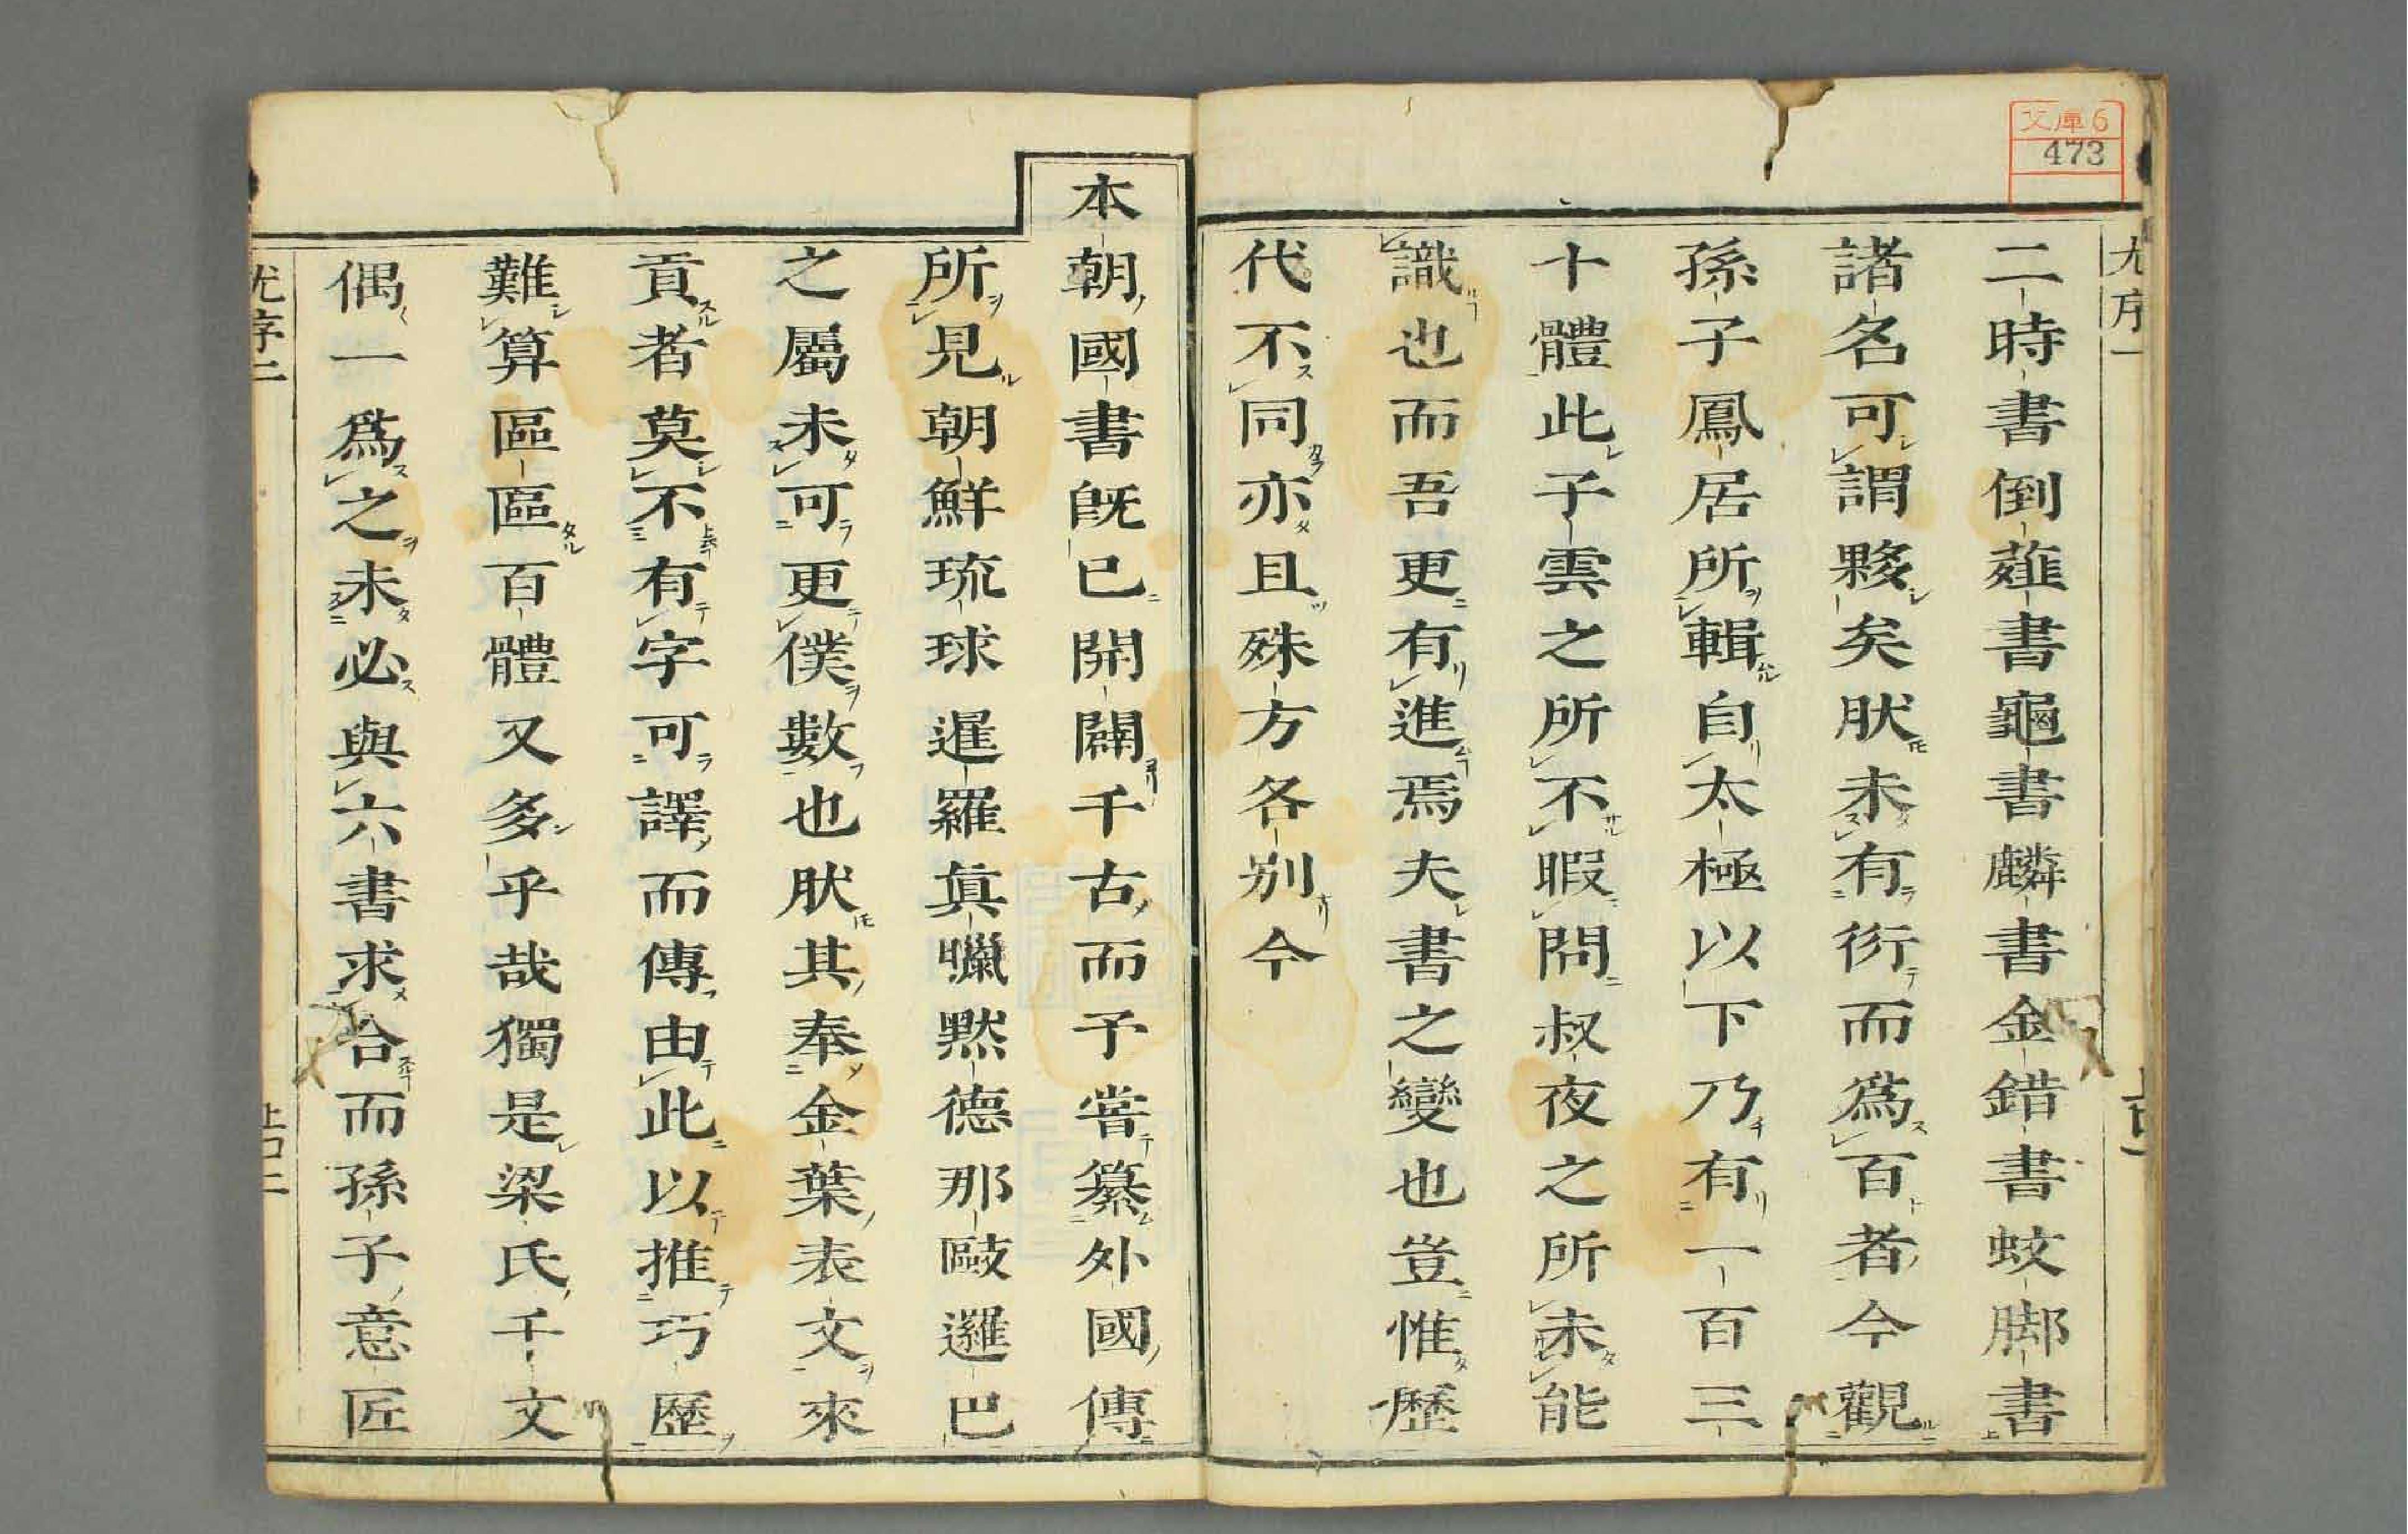 文庫6
473
尤序一
二時書倒薤書龜書麟書金錯書蚊脚書
諸名可謂夥矣肰未有衍而為百者今觀
孫子鳳居所輯自太極以下乃有一百三
十體此子雲之所不暇問叔夜之所未能
識也而吾更有進焉夫書之變也豈惟歷
代不同亦且殊方各別今
本朝國書旣已開闢千古而予嘗纂外國傳
所見朝鮮琉球暹羅眞臘黙德那歐邏巴
之屬未可更僕數也肰其奉金葉表文來
貢者莫不有字可譯而傳由此以推巧歷
難算區區百體又多乎哉獨是梁氏千文
偶一爲之未必與六書求合而孫子意匠
尤序二